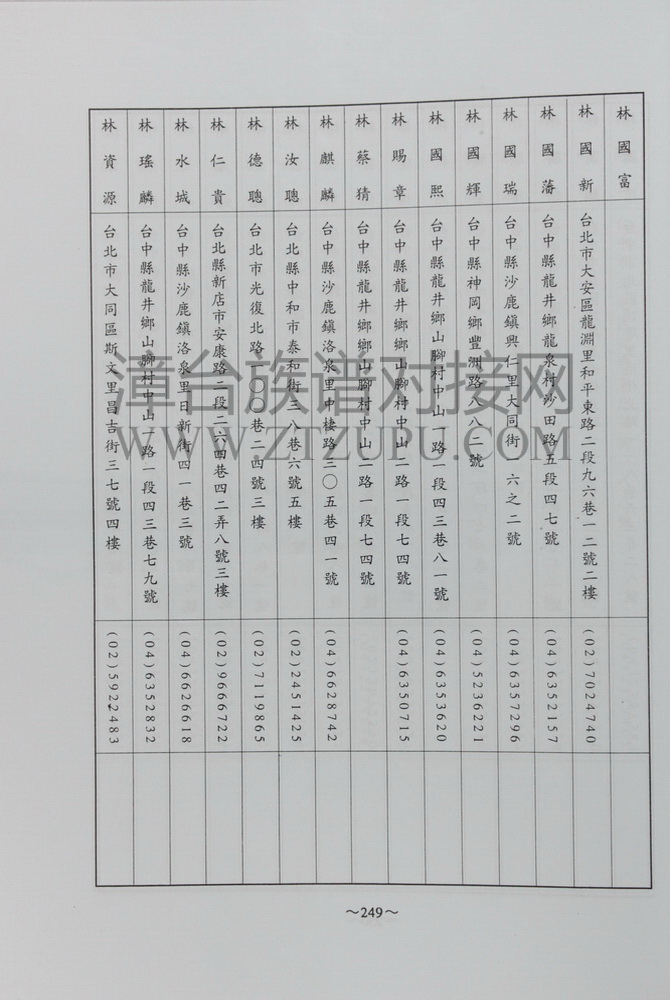 林國富
林國新
台北市大安區龍淵里和平東路二段九六巷一二號二樓
(02)7024740
林國藩
台中縣龍井鄉龍泉村沙田路五段四七號
(04)6352157
林國瑞
台中縣沙鹿鎮興仁里大同街 六之二號
(04)6357296
林國輝
台中縣神岡鄉豐洲路八八二號
(04)5236221
林國熙
台中縣龍井鄉山腳村中山一路一段四三巷八一號
(04)6353620
林賜章
台中縣龍井鄉鄉山腳村中山二路一段七四號
(04)6350715
林蔡猜
台中縣龍井鄉鄉山腳村中山二路一段七四號
林麒麟
台中縣沙鹿鎮洛泉里中棲路三〇五巷四一號
(04)6628742
林汝聰
台北縣中和市泰和街三八巷六號五樓
(02)2451425
林德聰
台北市光復北路一〇〇巷二四號三樓
(02)7119865
林仁貴
台北縣新店市安康路二段二六四巷四二弄八號三樓
(02)9666722
林水城
台中縣沙鹿鎮洛泉里日新街四一巷三號
(04)6626618
林瑤麟
台中縣龍井鄉山腳村中山一路一段四三巷七九號
(04)6352832
林資源
台北市大同區斯文里昌吉街三七號四樓
(02)5922483
漳台族谱对接网
WWW.ZTZUPU.COM
～249～